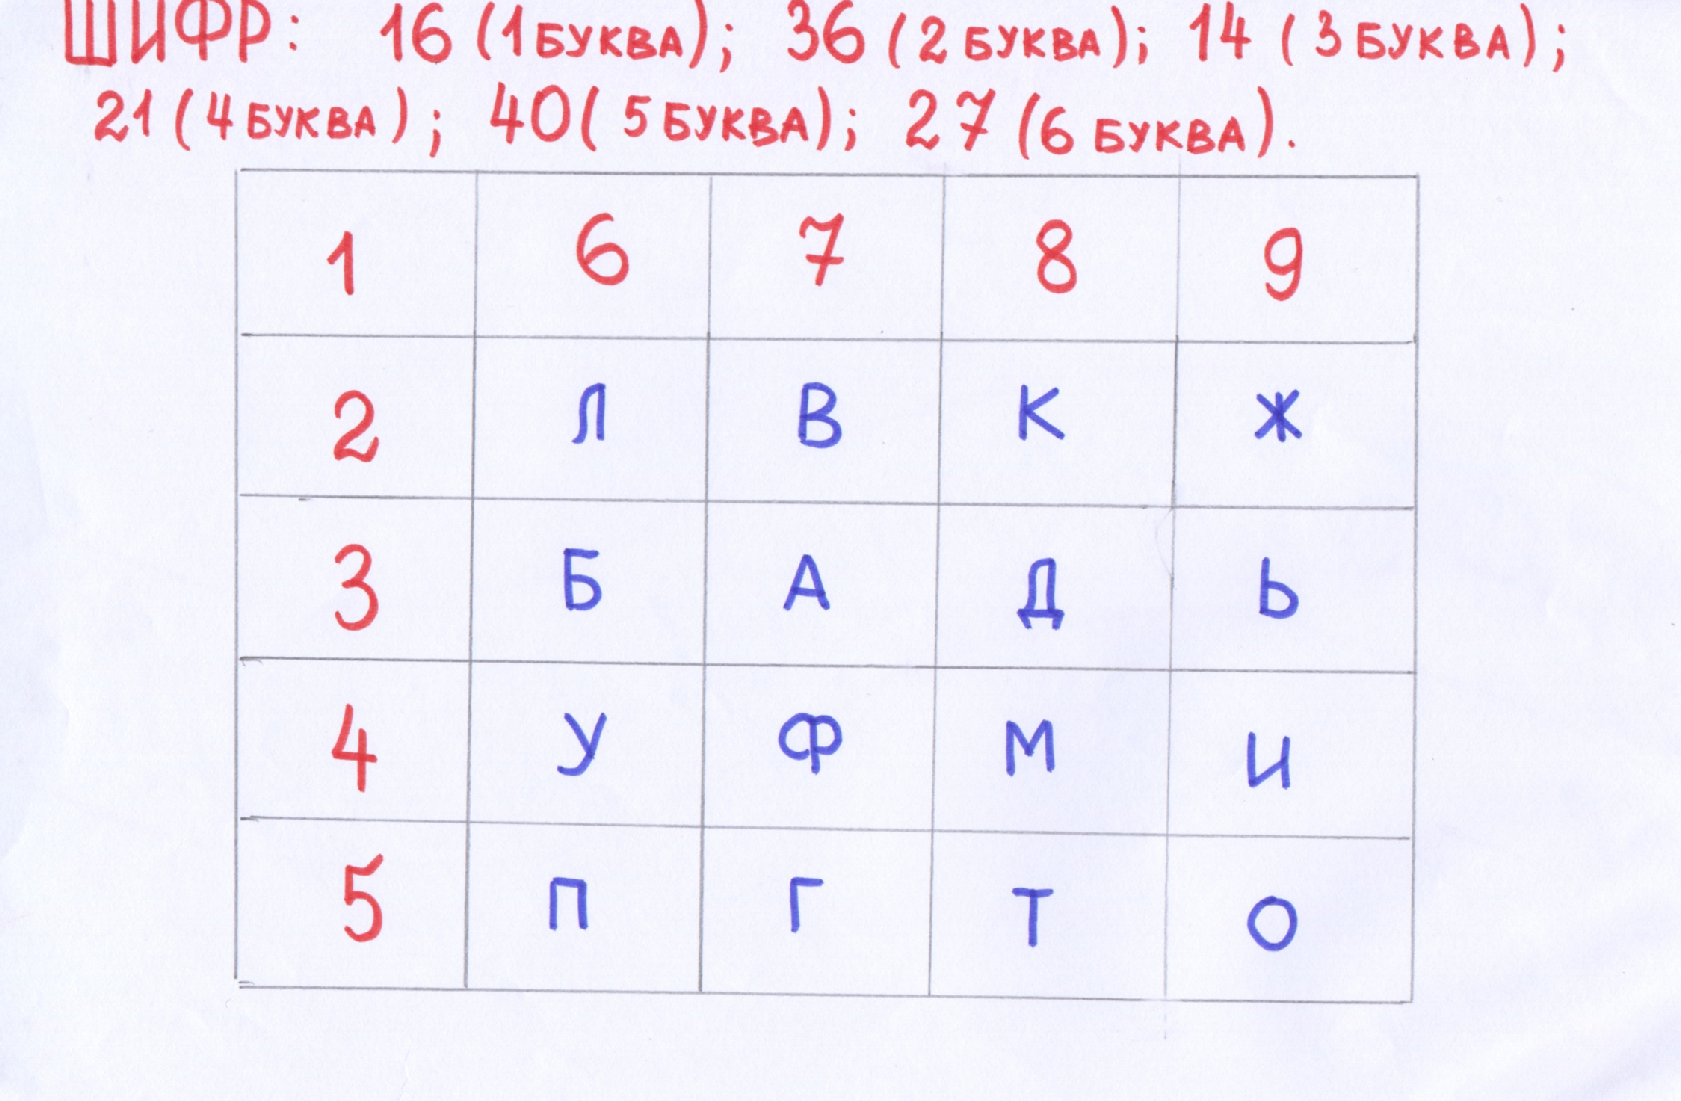 ШИФР: 16 (1 БУКВА); 36 (2 БУКВА); 14 (3 БУКВА);
21 (4 БУКВА); 40 (5 БУКВА); 27 (6 БУКВА).
1 6 7 8 9
2 Л В К Ж
3 Б А Д Ь
4 У Ф М И
5 П Г Т О